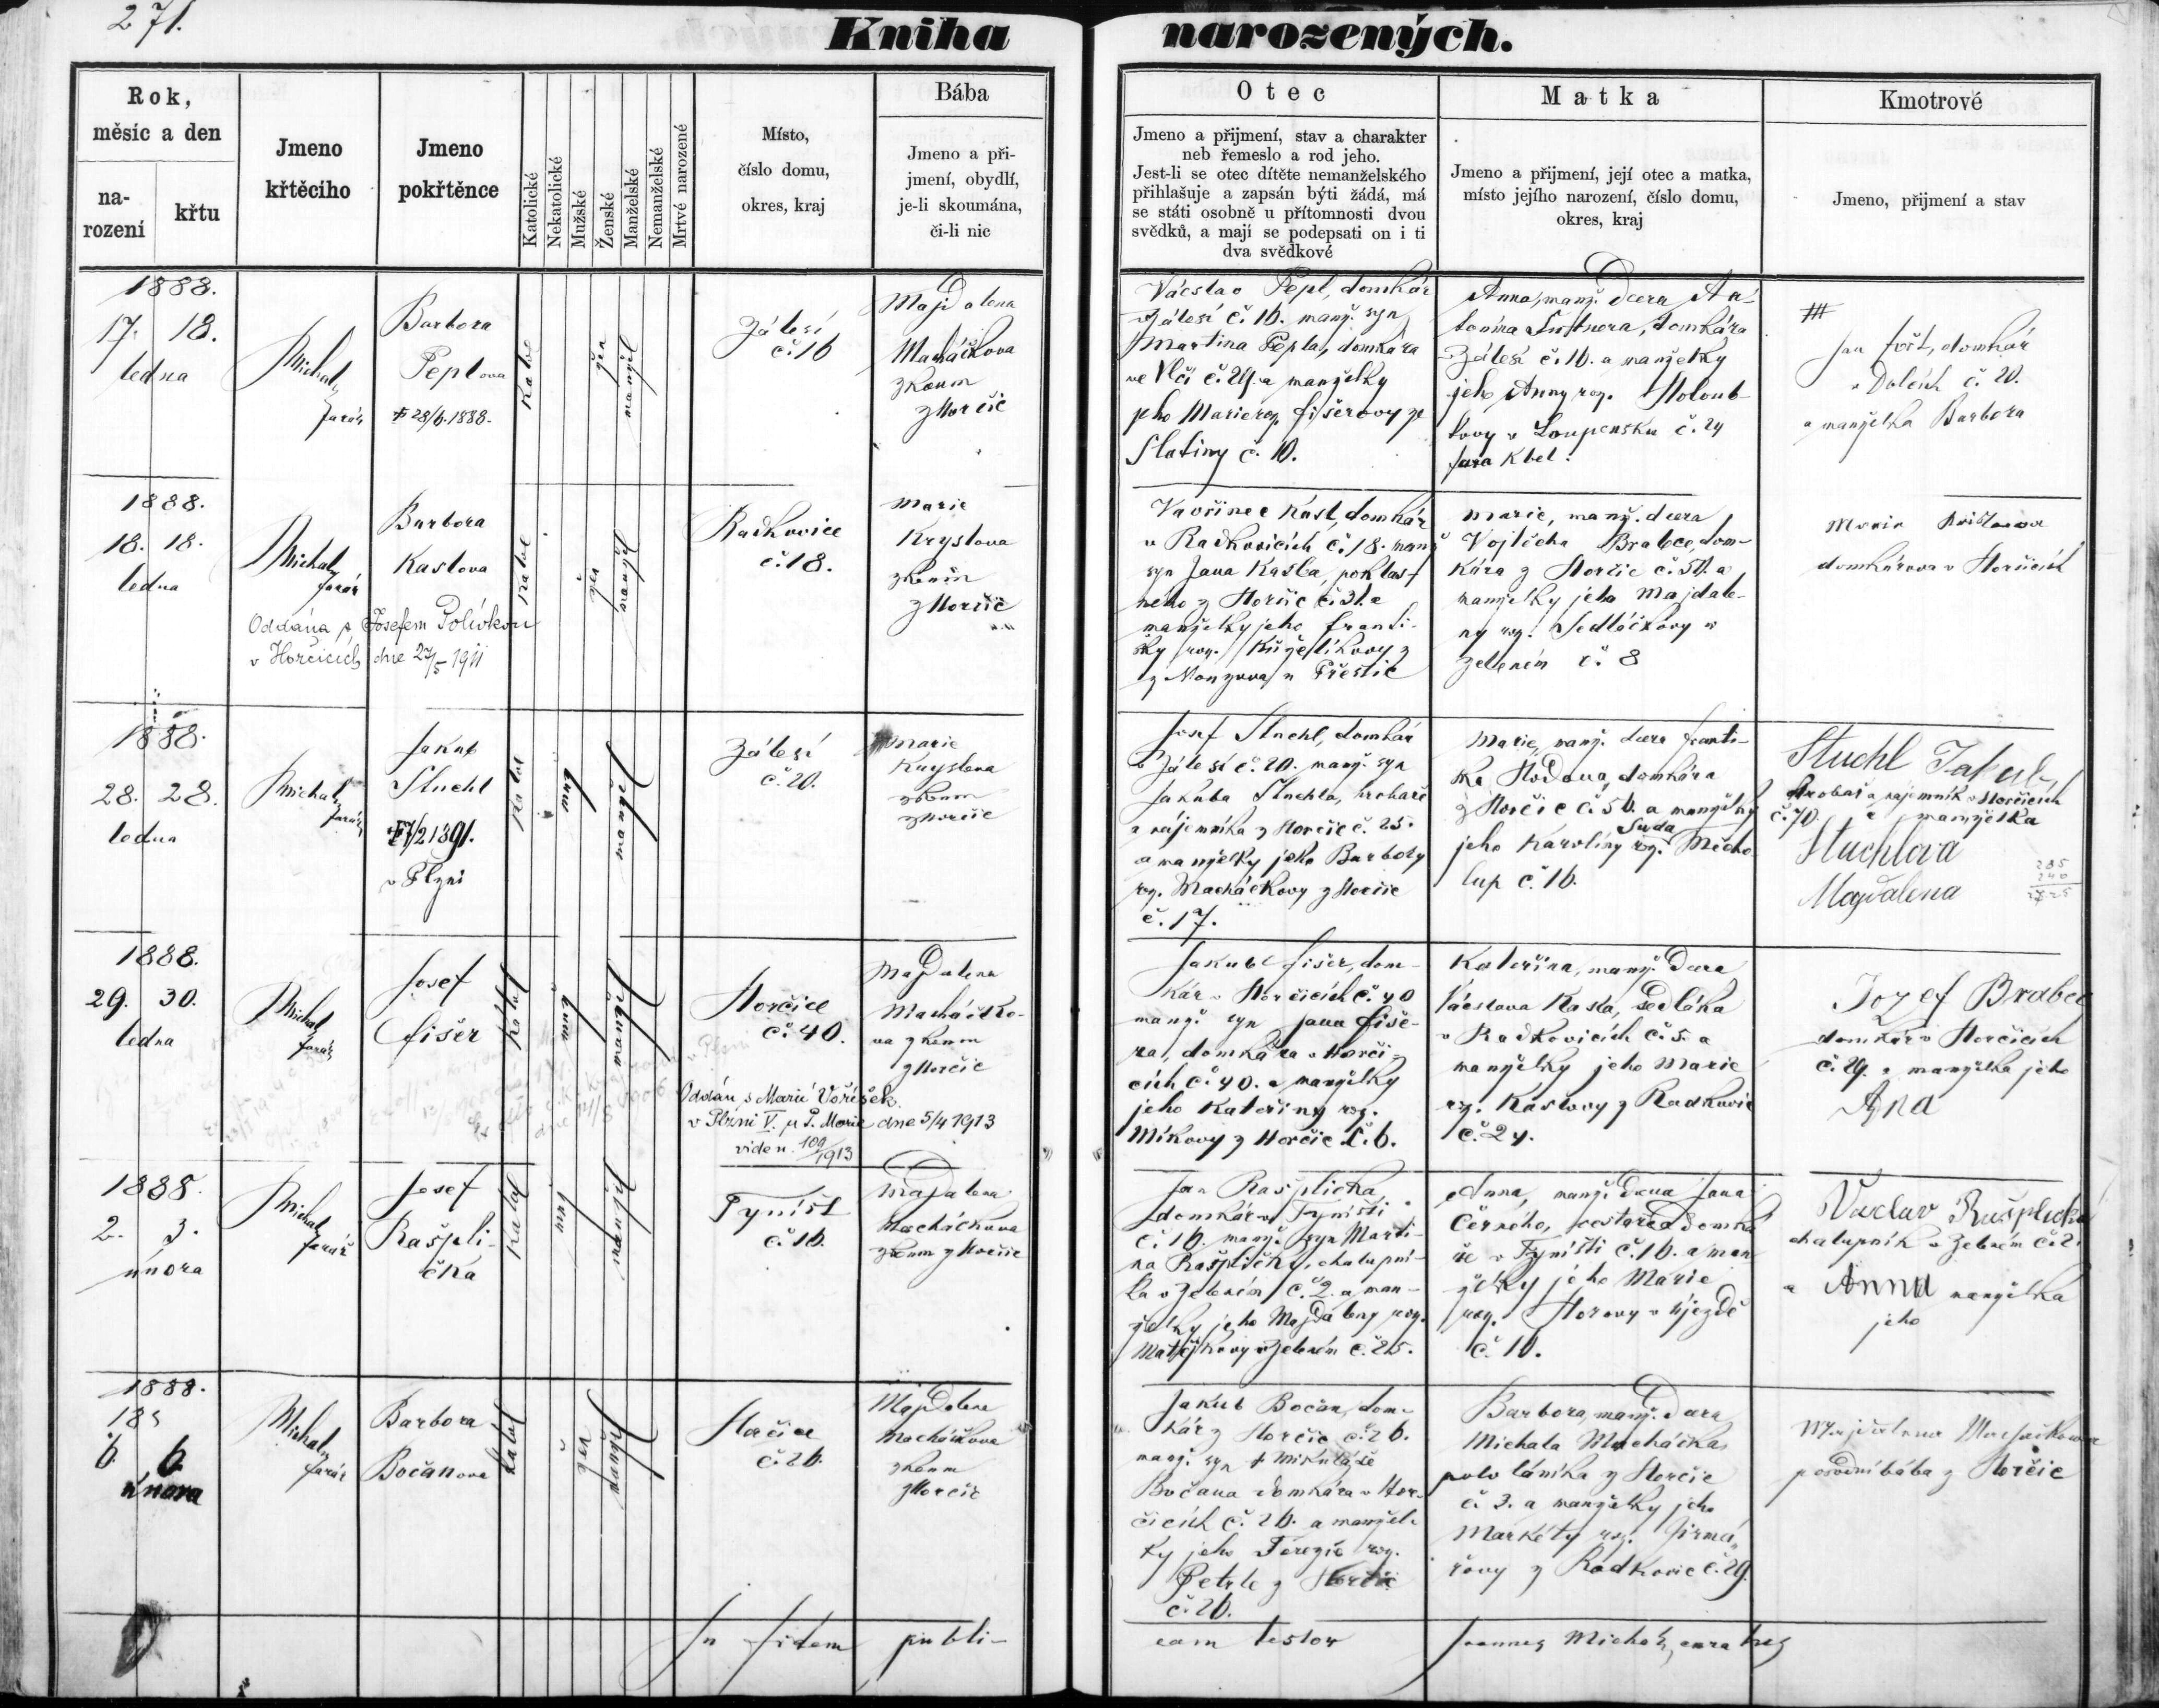 271.
Kniha narozených.
Rok,
měsíc a den
na-
rození
křtu
Jmeno
křtěcího
Jmeno
pokřtěnce
Katolické
Nekatolické
Mužské
Ženské
Manželské
Nemanželské
Mrtvé narozené
Místo,
číslo domu,
okres, kraj
Bába
Jmeno a při-
jmení, obydlí,
je-li skoumána,
či-li nic
Otec
Jmeno a přijmení, stav a charakter
neb řemeslo a rod jeho.
Jest-li se otec dítěte nemanželského
přihlašuje a zapsán býti žádá, má
se státi osobně u přítomnosti dvou
svědků, a mají se podepsati on i ti
dva svědkové
Matka
Jmeno a přijmení, její otec a matka,
místo jejího narození, číslo domu,
okres, kraj
Kmotrové
Jmeno, přijmení a stav
1888.
17. 18.
ledna
Michal
farář
Barbora
Peplova
28/6. 1888.
katol
žen
manžel
Zálesí
č. 16
Majdalena
Macháčkova
zkoum
z Horčic
Václav Pepl, domkár
v Zálesí č. 16. manž. syn
Martina Pepla, domkára
ve Vlčí č. 29. a manželky
jeho Marie roz. Fišerovy ze
Slatiny č. 10.
Anna, manž. dcera An-
tonína domkára
Zálesí č. 16. a manželky
jeho Anny roz. Holoub-
kovy v Loupensku č. 24
fara Kbel.
Jan Fošt, domkár
v Dolcích č. 20.
a manželka Barbora
1888.
18. 18.
ledna
Michal
farář
Barbora
Kaslova
Oddána s Josefem Polívkou
v Horčicích dne 27/5 1911
katol
žen
manžel
Radkovice
č. 18.
Marie
Kryslova
zkoum
z Horčic
Vavřinec Kasl, domkár
v Radkovicích č. 18. manž
syn Jana Kasla,
z Horčic č. 31. a
manželky jeho Franti-
šky roz. Kuželíkovy z
u Přeštic
Marie, manž. dcera
Vojtěcha Brabce, dom-
kára z Horčic č. 51. a
manželky jeho Majdale-
ny roz. Sedláčkovy v
Zeleném č. 8
Marie
domkárova v Horčicích
1888.
28. 28.
ledna
Michal
farář
Jakub
Stuchl
1891.
v Plzni
katol
muž
manžel
Zálesí
č. 20.
Marie
Kryslova
zkoum
z Horčic
Josef Stuchl, domkár
v Zálesí č. 20. manž. syn
Jakuba Stuchla, hrobaře
a nájemníka z Horčic č. 25.
a manželky jeho Barbory
roz. Macháčkovy z Horčic
č. 17.
Marie, manž. dcera Franti-
ška Hodana, domkára
z Horčic č. 50. a manželky
jeho Karolíny roz. Suda Mecho-
lup č. 16.
Stuchl Jakub
hrobař a nájemník v Horčicích
č. 70. a manželka
Stuchlová
Magdalena
1888.
29. 30.
ledna
Michal
farář
Josef
Fišer
katol
muž
manžel
Horčice
č. 40.
Oddán s Marií Voříšek
v Plzni V. u P. Marie dne 5/4 1913
vide n. 109/1913
Majdalena
Macháčko-
va zkoum
z Horčic
Jakub Fišer, dom-
kár v Horčicích č. 40
manž. syn Jana Fiše-
ra, domkára v Horči-
cích č. 40. a manželky
jeho Kateřiny roz.
Míkovy z Horčic č. 6.
Kateřina, manž. dcera
Václava Kasla, sedláka
v Radkovicích č. 5. a
manželky jeho Marie
roz. Kaslovy z Radkovic
č. 24.
Jozef Brabec
domkár v Horčicích
č. 29. a manželka jeho
Ana
1888.
2. 3.
února
Michal
farář
Josef
Rašpli-
čka
katol
muž
manžel
Týnišť
č. 16.
Majdalena
Macháčkova
zkoum z Horčic
Jan Rašplička,
domkár v Týništi
č. 16. manž. syn Marti-
na Rašpličky, chalupní-
ka v Zeleném č. 2. a man-
želky jeho Majdaleny roz.
Matějkovy v Zeleném č. 25.
Anna, manž. dcera Jana
Černého, cestaře a domká-
ře v Týništi č. 16. a man
želky jeho Marie
roz. Horovy v Újezdě
č. 10.
Vaclav Rašplička
chalupník v Zeleném č. 2.
a Anna manželka
jeho
1888.
6. 6
února
Michal
farář
Barbora
Bočanova
katol
žen
manžel
Horčice
č. 26.
Majdalena
Macháčkova
zkoum
z Horčic
Jakub Bočan, dom-
kár z Horčic č. 26.
manž. syn † Mikuláše
Bočana domkára v Hor-
čicích č. 26. a manžel-
ky jeho Terezie roz.
Petrle z Horčic
č. 26.
Barbora, manž. dcera
Michala Macháčka,
pololáníka z Horčic
č. 3. a manželky jeho
Markéty roz. Jirma-
řovy z Radkovic č. 29.
Majdalena Machačkowa
porodní bába z Horčic
In fidem publi-
cam testor
Joannes Michal, curatus